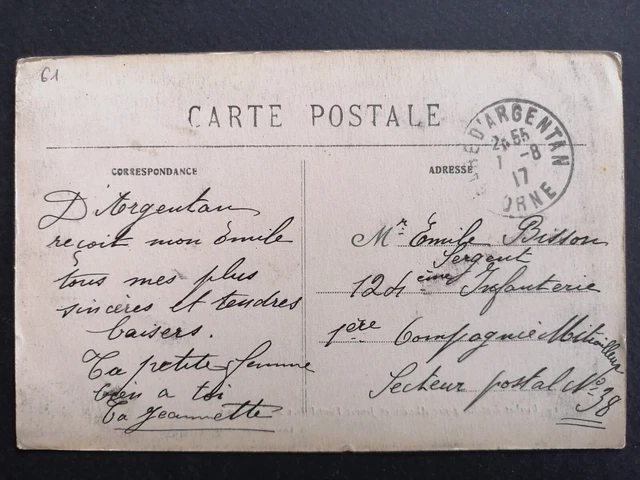 61
CARTE POSTALE
CORRESPONDANCE
ADRESSE
GARE D'ARGENTAN
21 55
1 -8
17
ORNE
D'Argentan
reçoit mon Emile
tous mes plus
sincères et tendres
baisers.
Ta petite femme
bien a toi
Ta Jeannette
Mr Emile Bisson
Sergent
124ème Infanterie
1ère Compagnie Mitrailleur
Secteur postal No 38